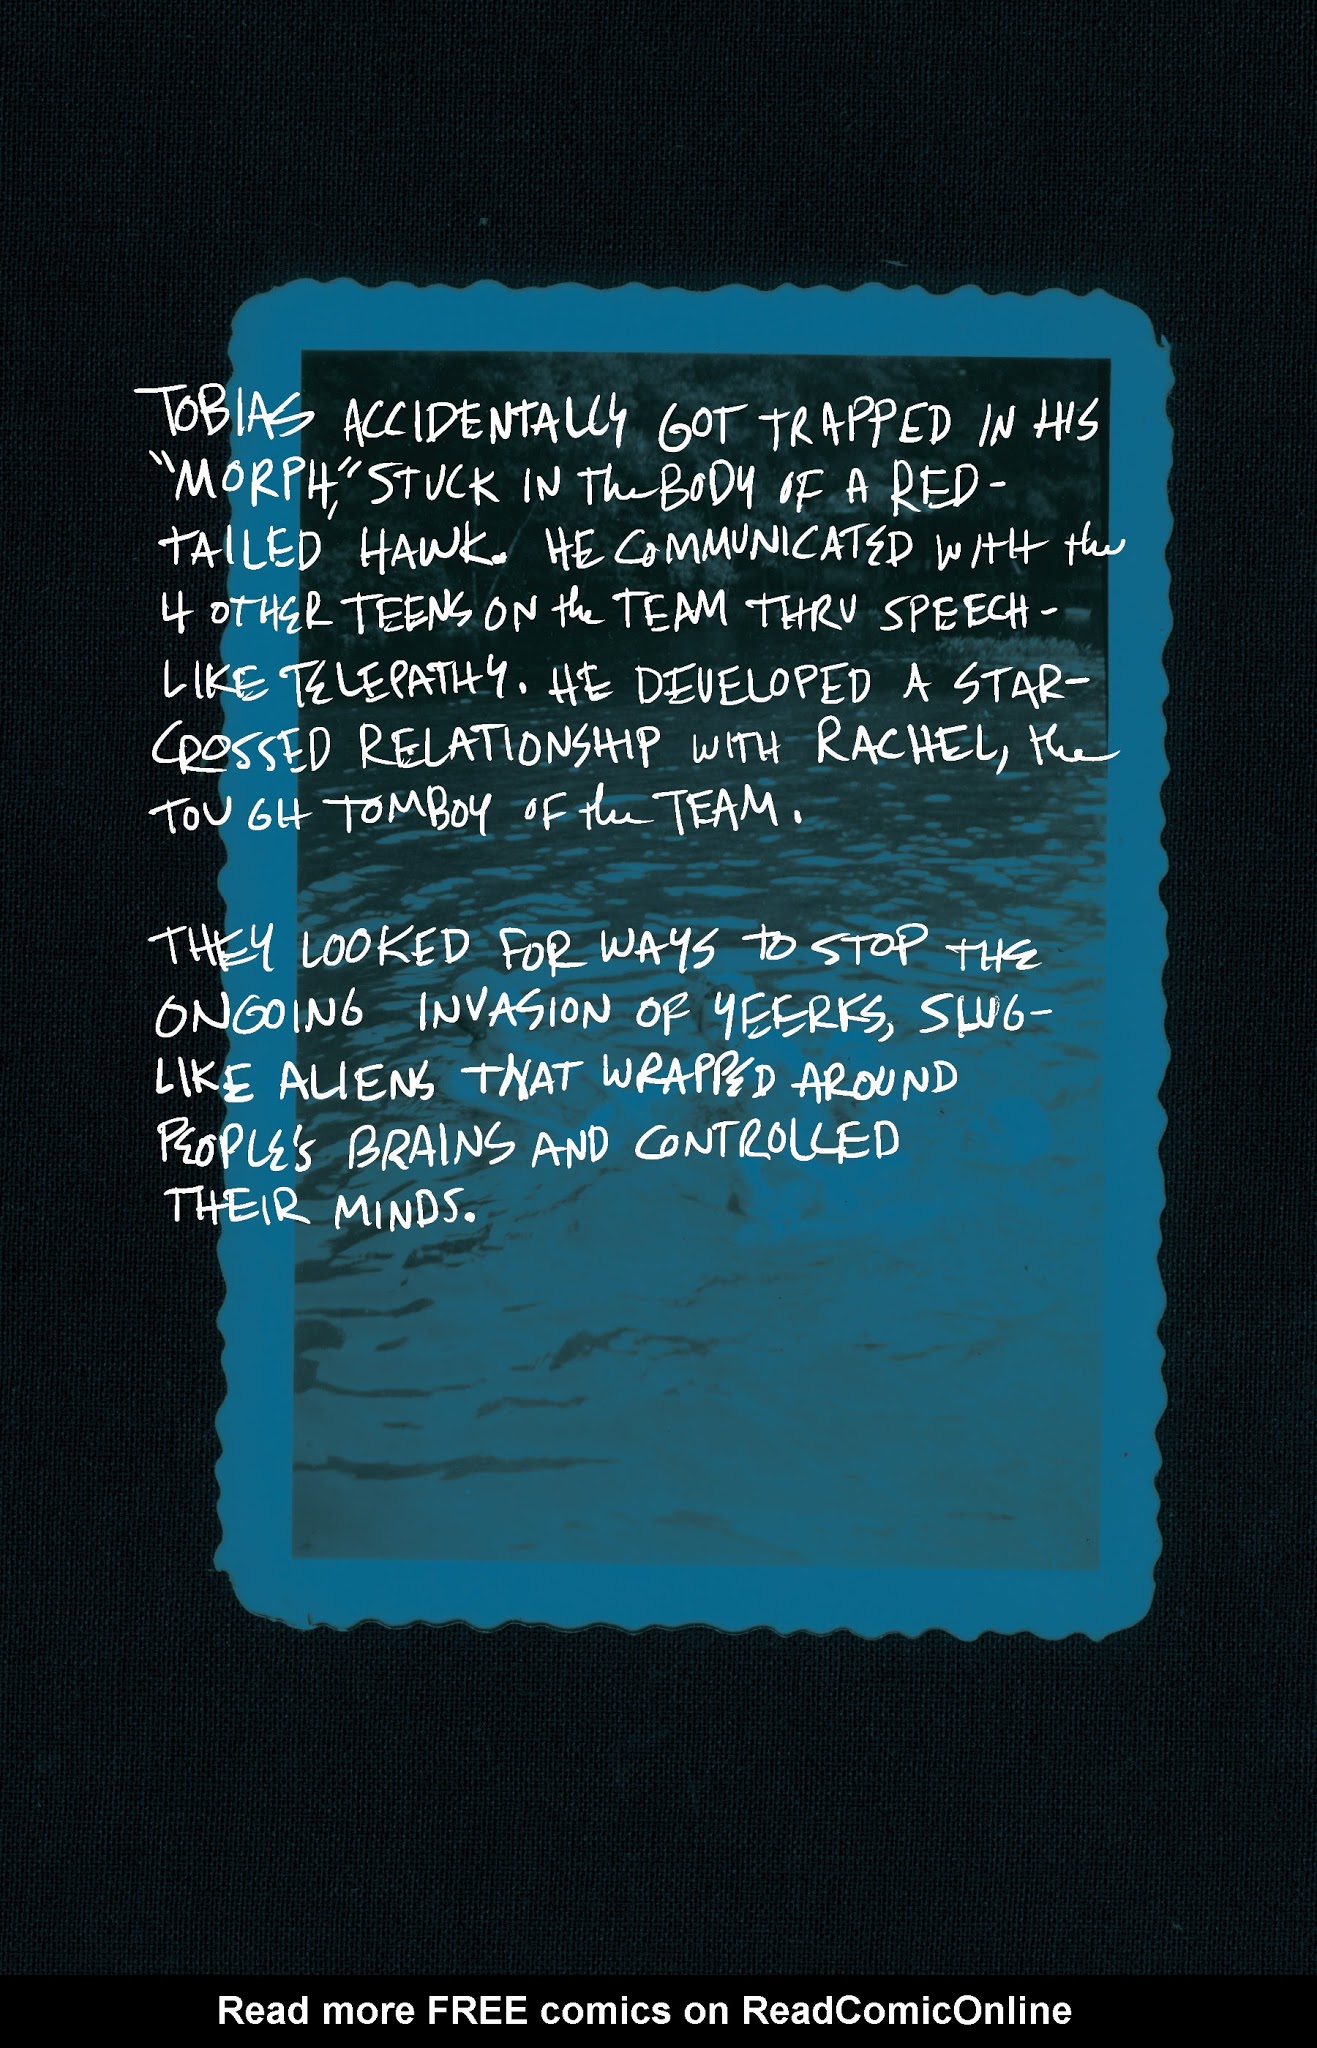 TOBIAS ACCIDENTALLY GOT TRAPPED IN HIS
"MORPH," STUCK IN the BODY OF A RED-
TAILED HAWK. HE COMMUNICATED WITH the
4 OTHER TEENS ON the TEAM THRU SPEECH-
LIKE TELEPATHY. HE DEVELOPED A STAR-
CROSSED RELATIONSHIP WITH RACHEL, the
TOUGH TOMBOY OF the TEAM.
THEY LOOKED FOR WAYS TO STOP THE
ONGOING INVASION OF YEERKS, SLUG-
LIKE ALIENS THAT WRAPPED AROUND
PEOPLE'S BRAINS AND CONTROLLED
THEIR MINDS.
Read more FREE comics on ReadComicOnline